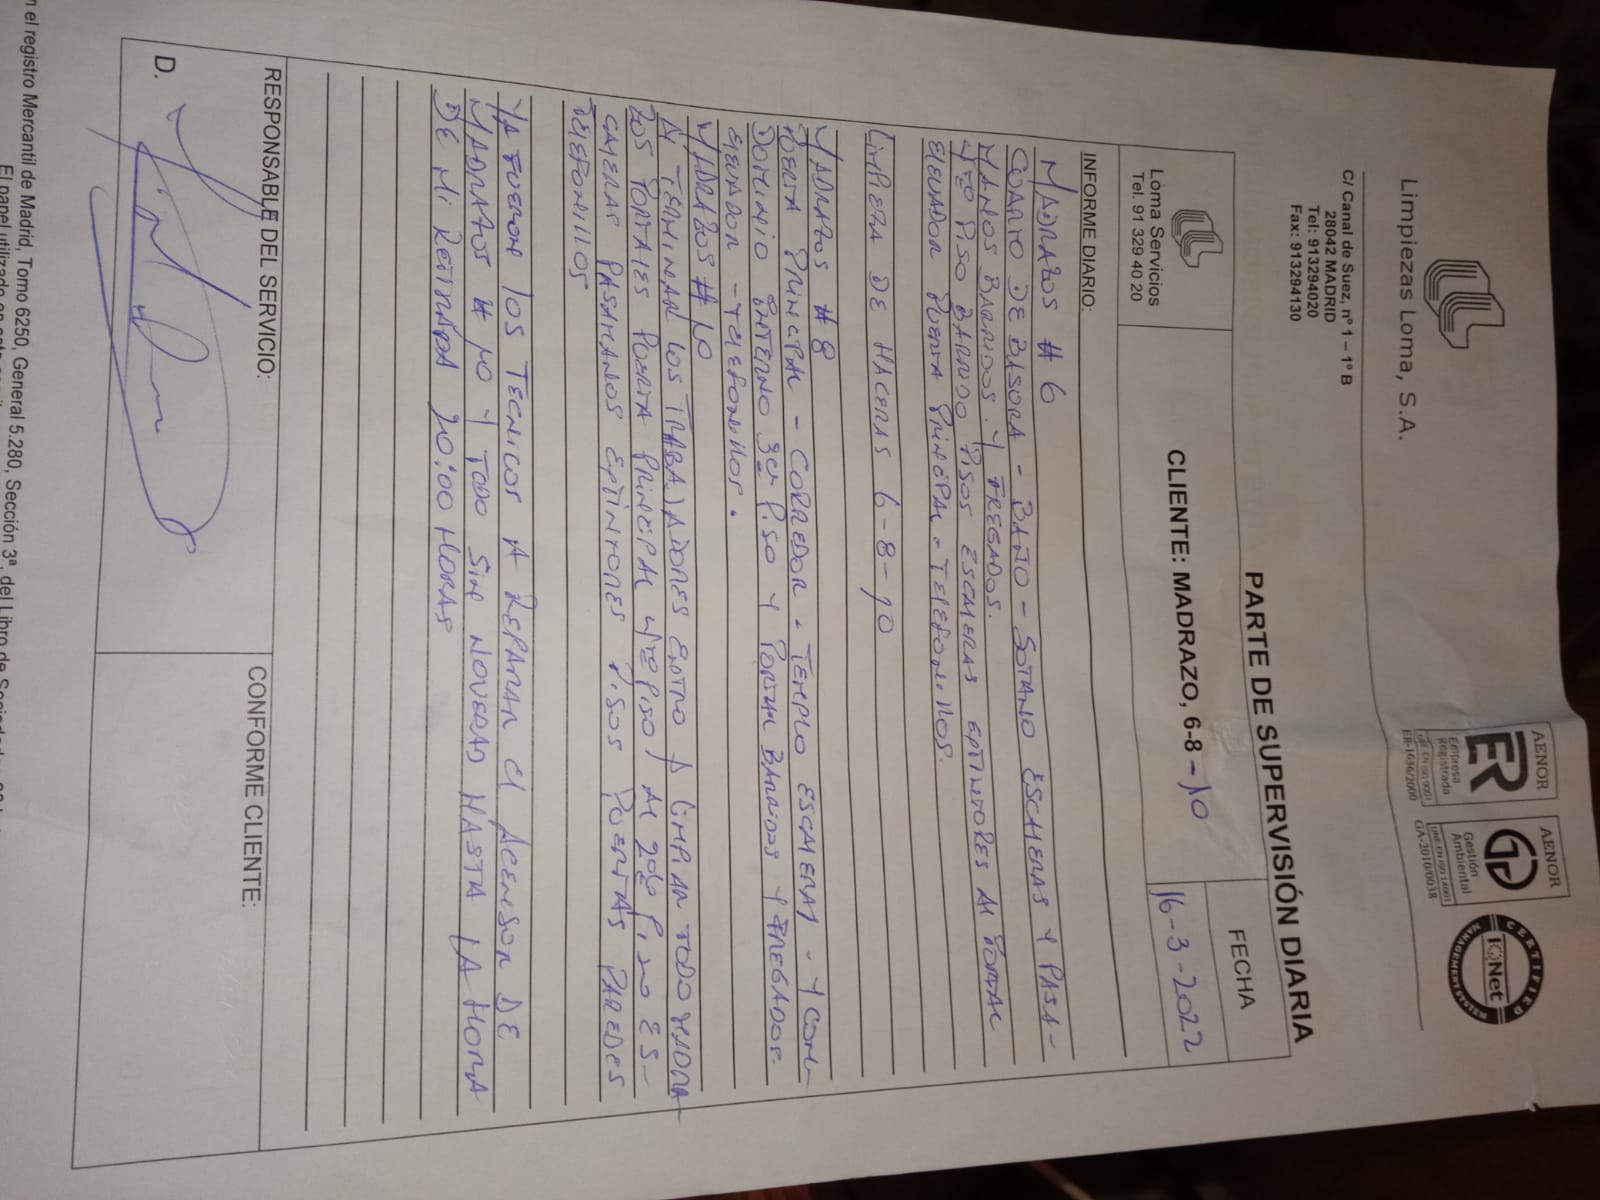 Limpiezas Loma, S.A.
C/ Canal de Suez, nº 1 – 1º B
28042 MADRID
Tel: 913294020
Fax: 913294130
AENOR
ER
Empresa
Registrada
UNE-EN ISO 9001
ER-1636/2000
AENOR
Gestión
Ambiental
UNE-EN ISO 14001
GA-2010/0038
CERTIFIED
IQNet
MANAGEMENT SYSTEM
PARTE DE SUPERVISIÓN DIARIA
Loma Servicios
Tel. 91 329 40 20
CLIENTE: MADRAZO, 6-8-10
FECHA
16-3-2022
INFORME DIARIO:
MADRAZOS # 6
CUARTO DE BASURA - BAÑO - SOTANO ESCALERAS Y PASA-
MANOS BARRIDOS. Y FREGADOS.
4TO PISO BARRIDO PISOS ESCALERAS EXTINTORES AL PORTAL
ELEVADOR PUERTA PRINCIPAL - TELEFONILLOS.
LIMPIEZA DE HACERAS 6-8-10
MADRAZOS # 8
PUERTA PRINCIPAL - CORREDOR - TEMPLO ESCALERAS - Y
DOMINIO INTERNO 3ER PISO Y PORTAL BARRIDOS Y FREGADOR.
ELEVADOR - TELEFONILLOS.
MADRAZOS # 10
AL TERMINAR LOS TRABAJADORES ENTRO A LIMPIAR TODO MADRA-
ZOS PORTALES PUERTA PRINCIPAL 4TO PISO / AL 2DO PISO ES-
CALERAS PASAMANOS EXTINTORES PISOS PUERTAS PAREDES
TELEFONILLOS
YA FUERON LOS TECNICOS A REPARAR EL ACENSOR DE
MADRAZOS # 10 Y TODO SIN NOVEDAD HASTA LA HORA
DE MI RETIRADA 20:00 HORAS
RESPONSABLE DEL SERVICIO:
D.
CONFORME CLIENTE:
n el registro Mercantil de Madrid, Tomo 6250, General 5.280, Sección 3ª, del Libro de
El papel utilizado en este